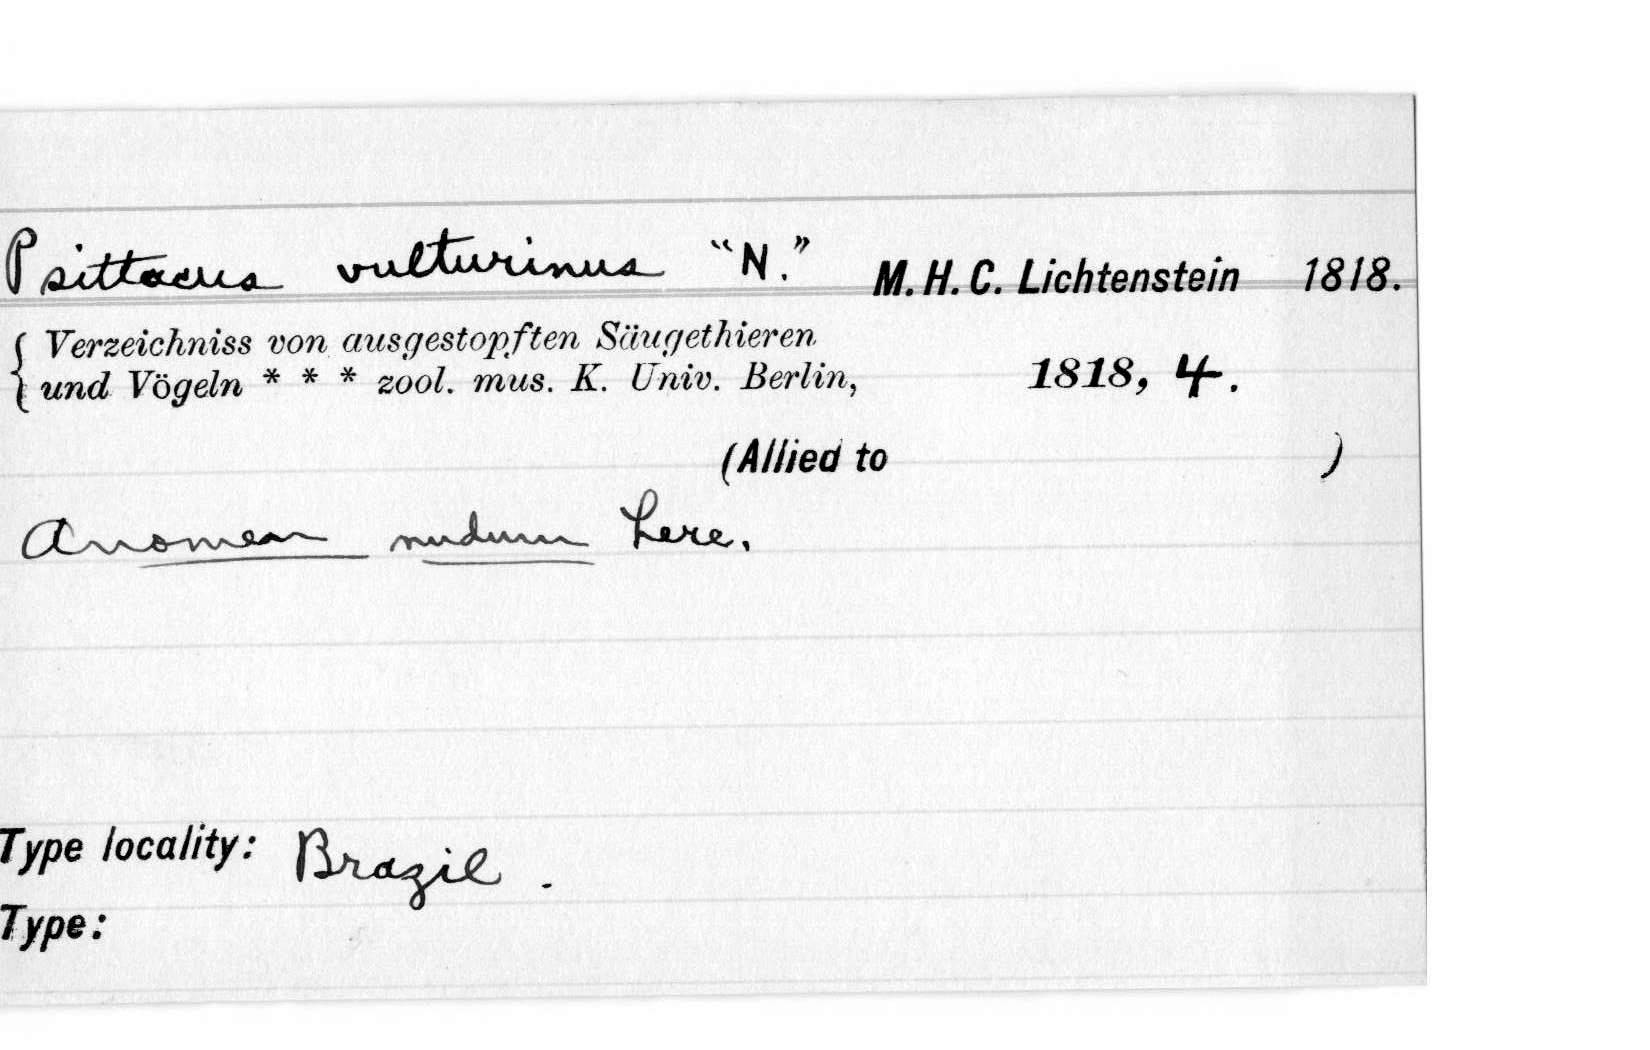 Psittacus vulturinus "N." M. H. C. Lichtenstein 1818.
{ Verzeichniss von ausgestopften Säugethieren
und Vögeln * * * zool. mus. K. Univ. Berlin, 1818, 4.
(Allied to )
a nomen nudum here.
Type locality: Brazil.
Type: